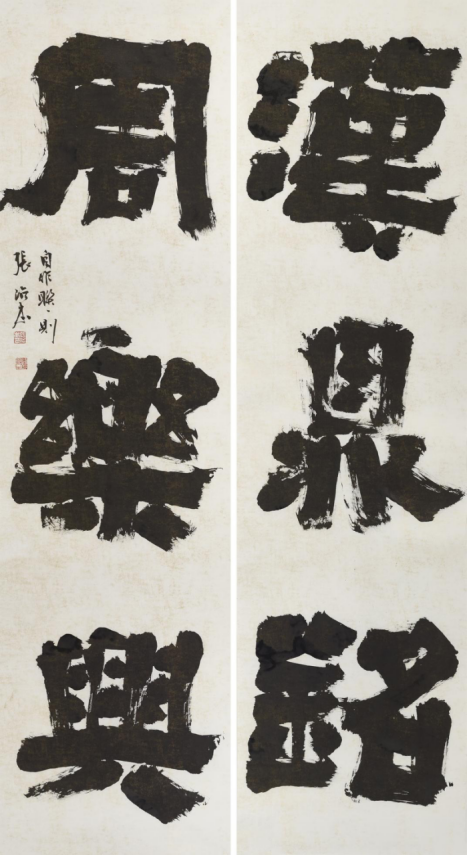 漢鼎銘
周樂興
自作聯一則
張